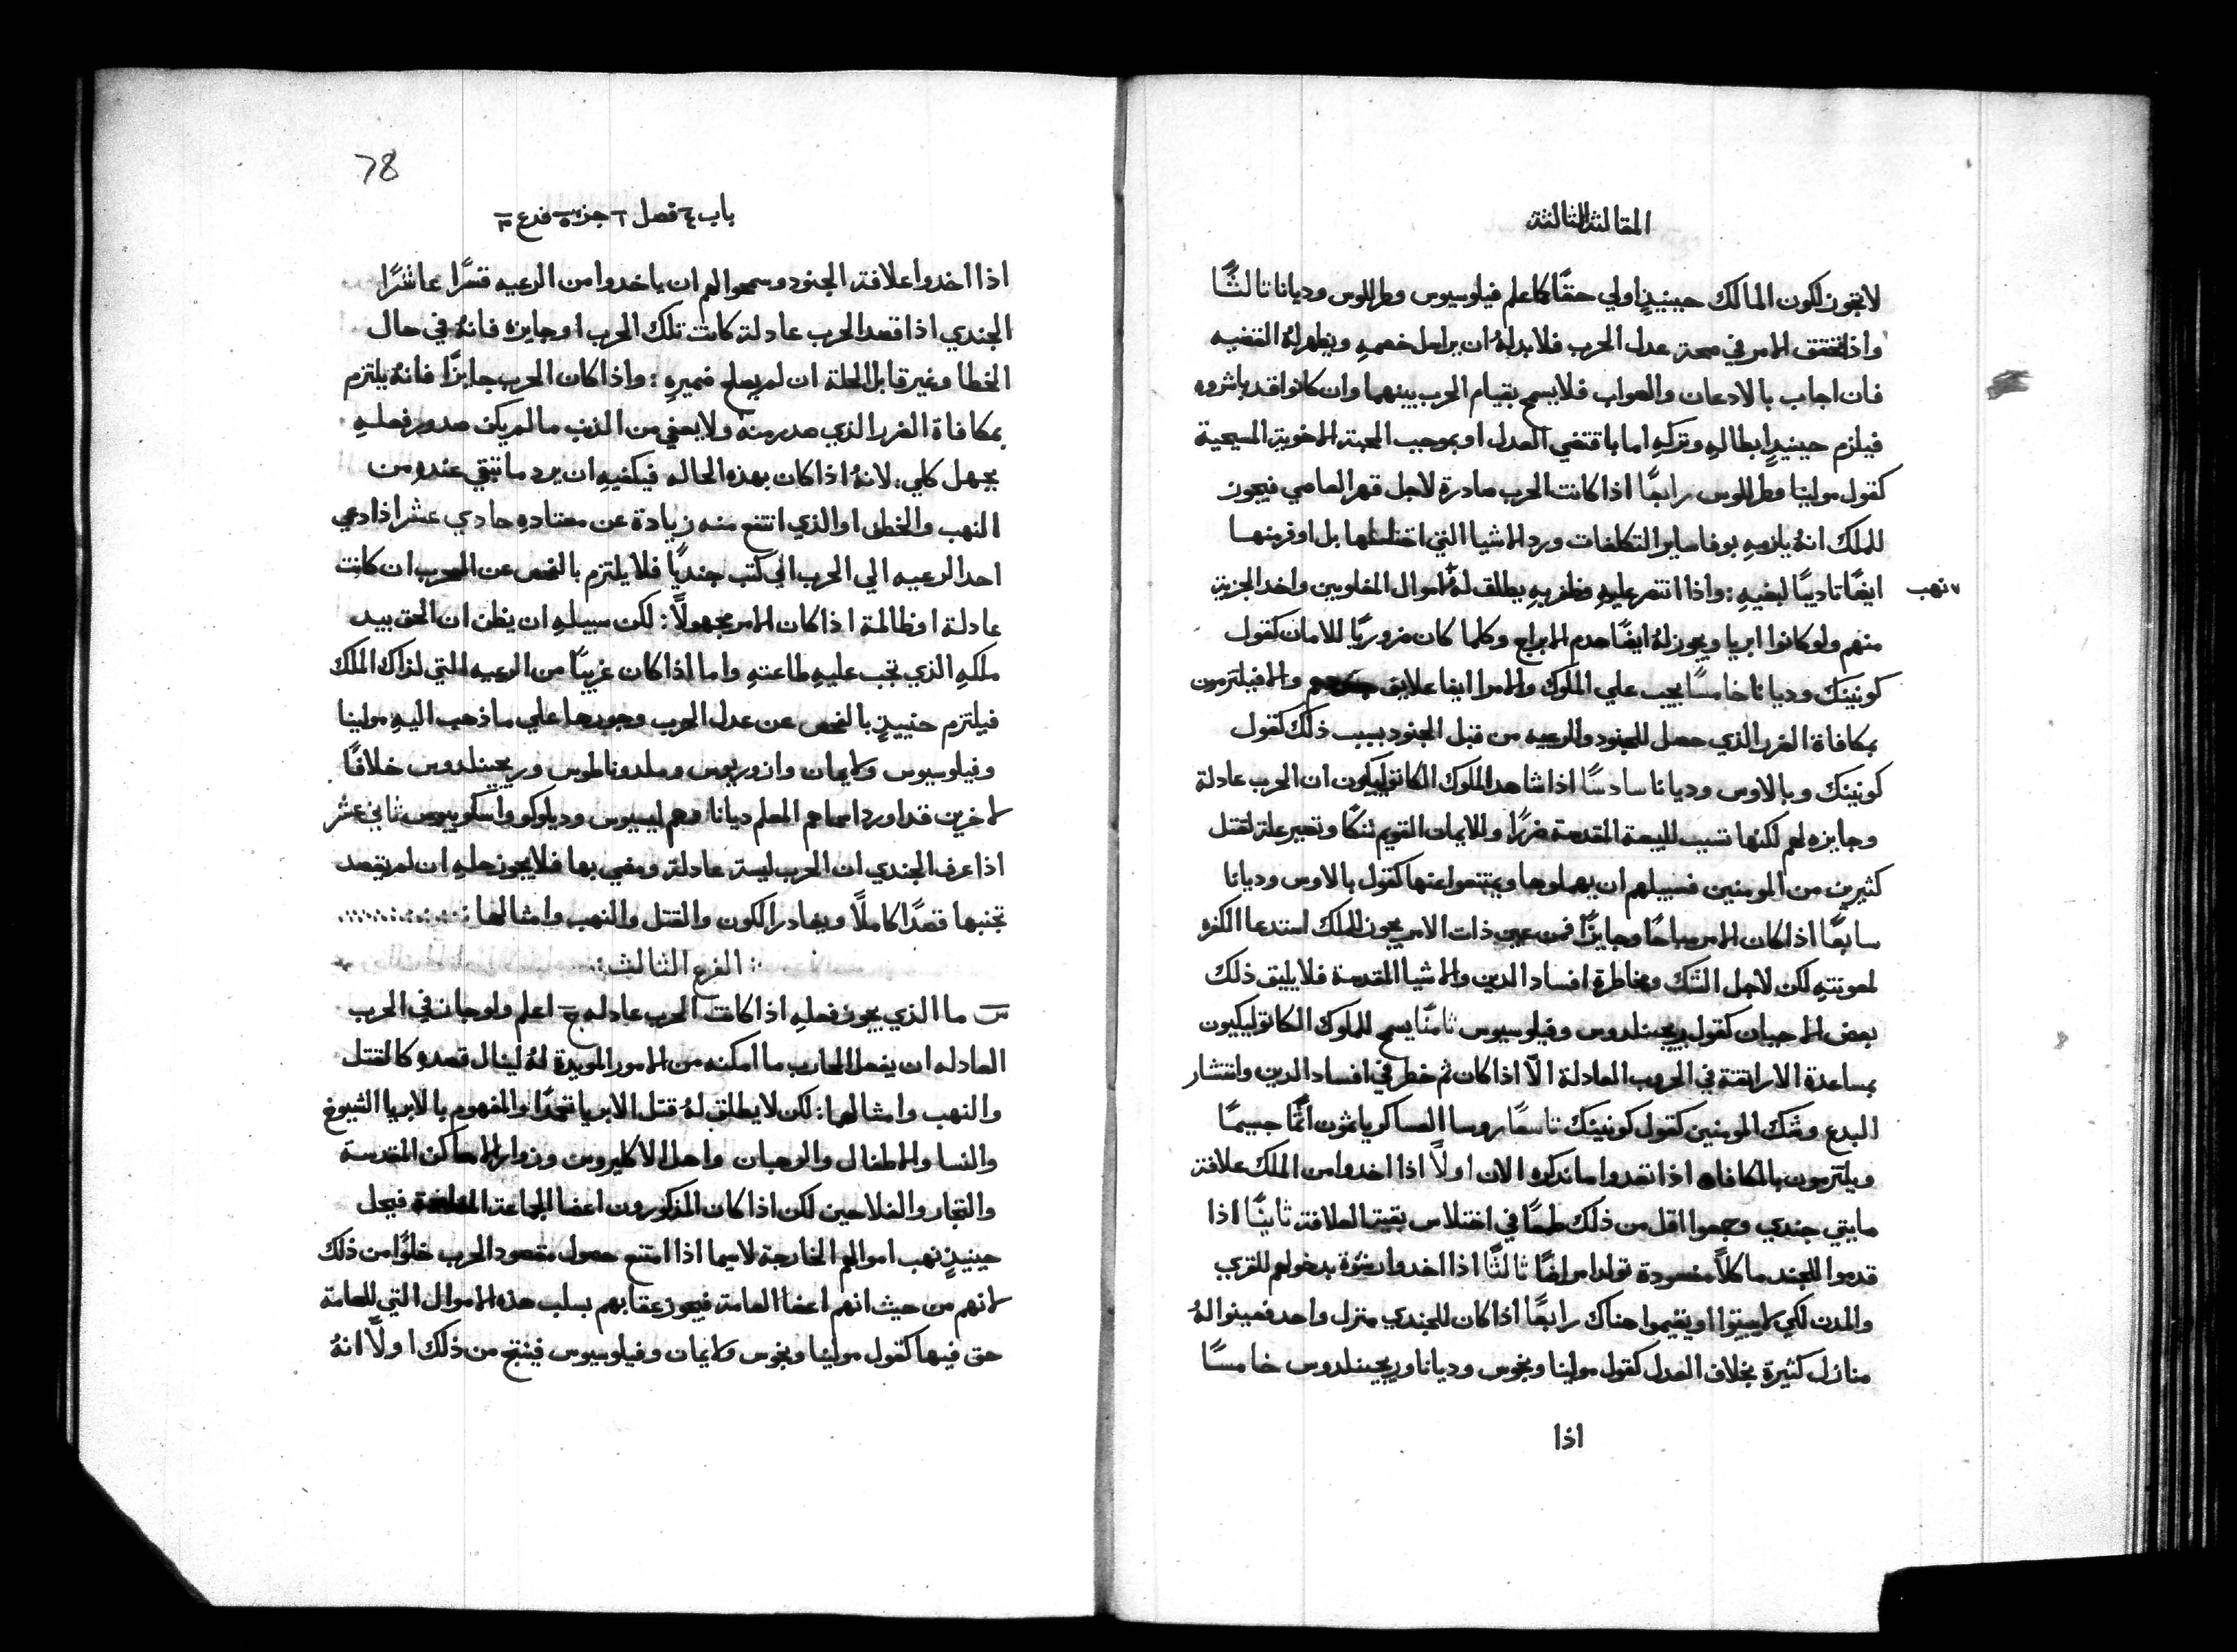 المقالة الثالثة
لا تجوز لكون المالك حينيذٍ اولي حقًا كما علم فيلوسيوس وطرللوس وديانا ثالثًا
واذا تحقق الامر في صحة عدل الحرب فلا بد له ان يراسل خصمهِ ويظهر لهُ القضيه
فان اجاب بالادعان والصواب فلا يسمح بقيام الحرب بينهما وان كانوا قد باشروه
فيلزم حينيذٍ ابطالهِ وتركهِ اما باقتضي العدل او بموجب المحبة الاخوية المسيحية
كقول مولينا وطرللوس رابعًا اذا كانت الحرب صادرة لاجل قهر العاصي فيجوز
للملك انهُ يلزمهِ بوفا ساير التكلفات ورد الاشيا التي اختلسها بل اوفر منها
ايضًا تاديبًا لبغيهِ : واذا انتصر عليهِ وظفر بهِ يطلق لهُ اموال المغلوبين واخد الجزية
نهب
منهم ولو كانوا ابريا ويجوز لهُ ايضًا هدم الابراج وكلما كان ضروريًا للامان كقول
كونينك وديانا خامسًا يجب علي الملوك والامرا ايفا علايق والا فيلتزمون
بمكافاة الضرر الذي حصل للجنود والرعيه من قبل الجنود بسبب ذلك كقول
كونينك وبالاوس وديانا سادسًا اذا شاهد الملوك الكاتوليكيون ان الحرب عادلة
وجايزه لهم لكنها تسبب للبيعة المقدسة ضررًا وللايمان القويم شكًا وتصير علة لقتل
كثيرين من المومنين فسبيلهم ان يهملوها ويمتنعوا عنها كقول بالاوس وديانا
سابعًا اذا كان الامر مباحًا وجايزًا فمن عين ذات الامر يجوز للملك استدعا الكفره
لمعونتهِ لكن لاجل الشك ومخاطرة افساد الدين والاشيا المقدسة فلا يليق ذلك
بعض الاحيان كقول ريجينلدوس وفيلوسيوس ثامنًا يسمح للملوك الكاتوليكيون
بمساعدة الاراتقة في الحروب العادلة الّا اذا كان ثم خطر في افساد الدين وانتشار
البدع وشك المومنين كقول كونينك تاسعًا روسا العساكر ياثمون اثمًا جسيمًا
ويلتزمون بالمكافاه اذا تعدوا ما نذكره الان اولًا اذا اخدوا من الملك علافة
مايتي جندي وجمعوا اقل من ذلك طمعًا في اختلاس بقية العلافة ثانيًا اذا
قدموا للجند ماكلًا مفسودة تولد امراضًا ثالثًا اذا اخدوا رشوة بدخولهم للقري
والمدن لكي لا يبيتوا او يقيموا هناك رابعًا اذا كان للجندي منزل واحد فعينوا لهُ
منازل كثيرة بخلاف العدل كقول مولينا وبخوس وديانا وريجينلدوس خامسًا
اذا
78
باب ٤ فصل ٦ جزء ٥ فرع ٣
اذا اخدوا علافة الجنود وسمحوا لهم ان ياخدوا من الرعيه قسرًا عاشرًا
الجندي اذا قصد الحرب عادلة كانت تلك الحرب او جايزه فانهُ في حال
الخطا وغير قابل الحلة ان لم يصلح ضميرهِ : واذا كان الحرب جايزًا فانهُ يلتزم
بمكافاة الضرر الذي صدر منه ولا يعفي من الذنب ما لم يكن صدور فعلهِ
بجهل كلي : لانهُ اذا كان بهذه الحاله فيكفيهِ ان يرد ما تبقي عنده من
النهب والخطف او الذي انتفع منه زيادة عن معتادهِ حادي عشر اذا دعي
احد الرعيه الي الحرب الي كتب جنديًا فلا يلتزم بالفحص عن الحرب ان كانت
عادلة او ظالمة اذا كان الامر مجهولًا : لكن سبيلهِ ان يظن ان الحق بيد
ملكهِ الذي تجب عليهِ طاعتهِ واما اذا كان غريبًا من الرعيه التي لذاك الملك
فيلتزم حينيذٍ بالفحص عن عدل الحرب وجورها علي ما ذهب اليهِ مولينا
وفيلوسيوس ولايمان وازوريوس وملدوناطوس وريجينلدوس خلافًا
لاخرين قد اورد اسماهم المعلم ديانا وهم ليسيوس وديلوكو واسكوبيوس ثاني عشر
اذا عرف الجندي ان الحرب ليسة عادلة ومضي بها فلا يجوز حلهِ ان لم يقصد
تجنبها قصدًا كاملًا ويغادر الكون والقتل والنهب وامثالها
الفرع الثالث
س ما الذي يجوز فعلهِ اذا كانت الحرب عادله ج اعلم ولو جاز في الحرب
العادله ان يفعل المحارب ما امكنه من الامور المويدة لهُ لينال قصده كالقتل
والنهب وامثالها : لكن لا يطلق لهُ قتل الابريا تعمدًا والمفهوم بالابريا الشيوخ
والنسا والاطفال والرهبان واهل الاكليروس وزوار الاماكن المقدسة
والتجار والفلاحين لكن اذا كان المذكورون اعضا الجماعة فيحل
حينيذٍ نهب اموالهم الخارجة لا سيما اذا امتنع حصول مقصود الحرب خلوًا من ذلك
لانهم من حيث انهم اعضا العامة فيجوز عقابهم بسلب هذه الاموال التي للعامة
حق فيها كقول مولينا وبخوس ولايمان وفيلوسيوس فينتج من ذلك اولًا انهُ